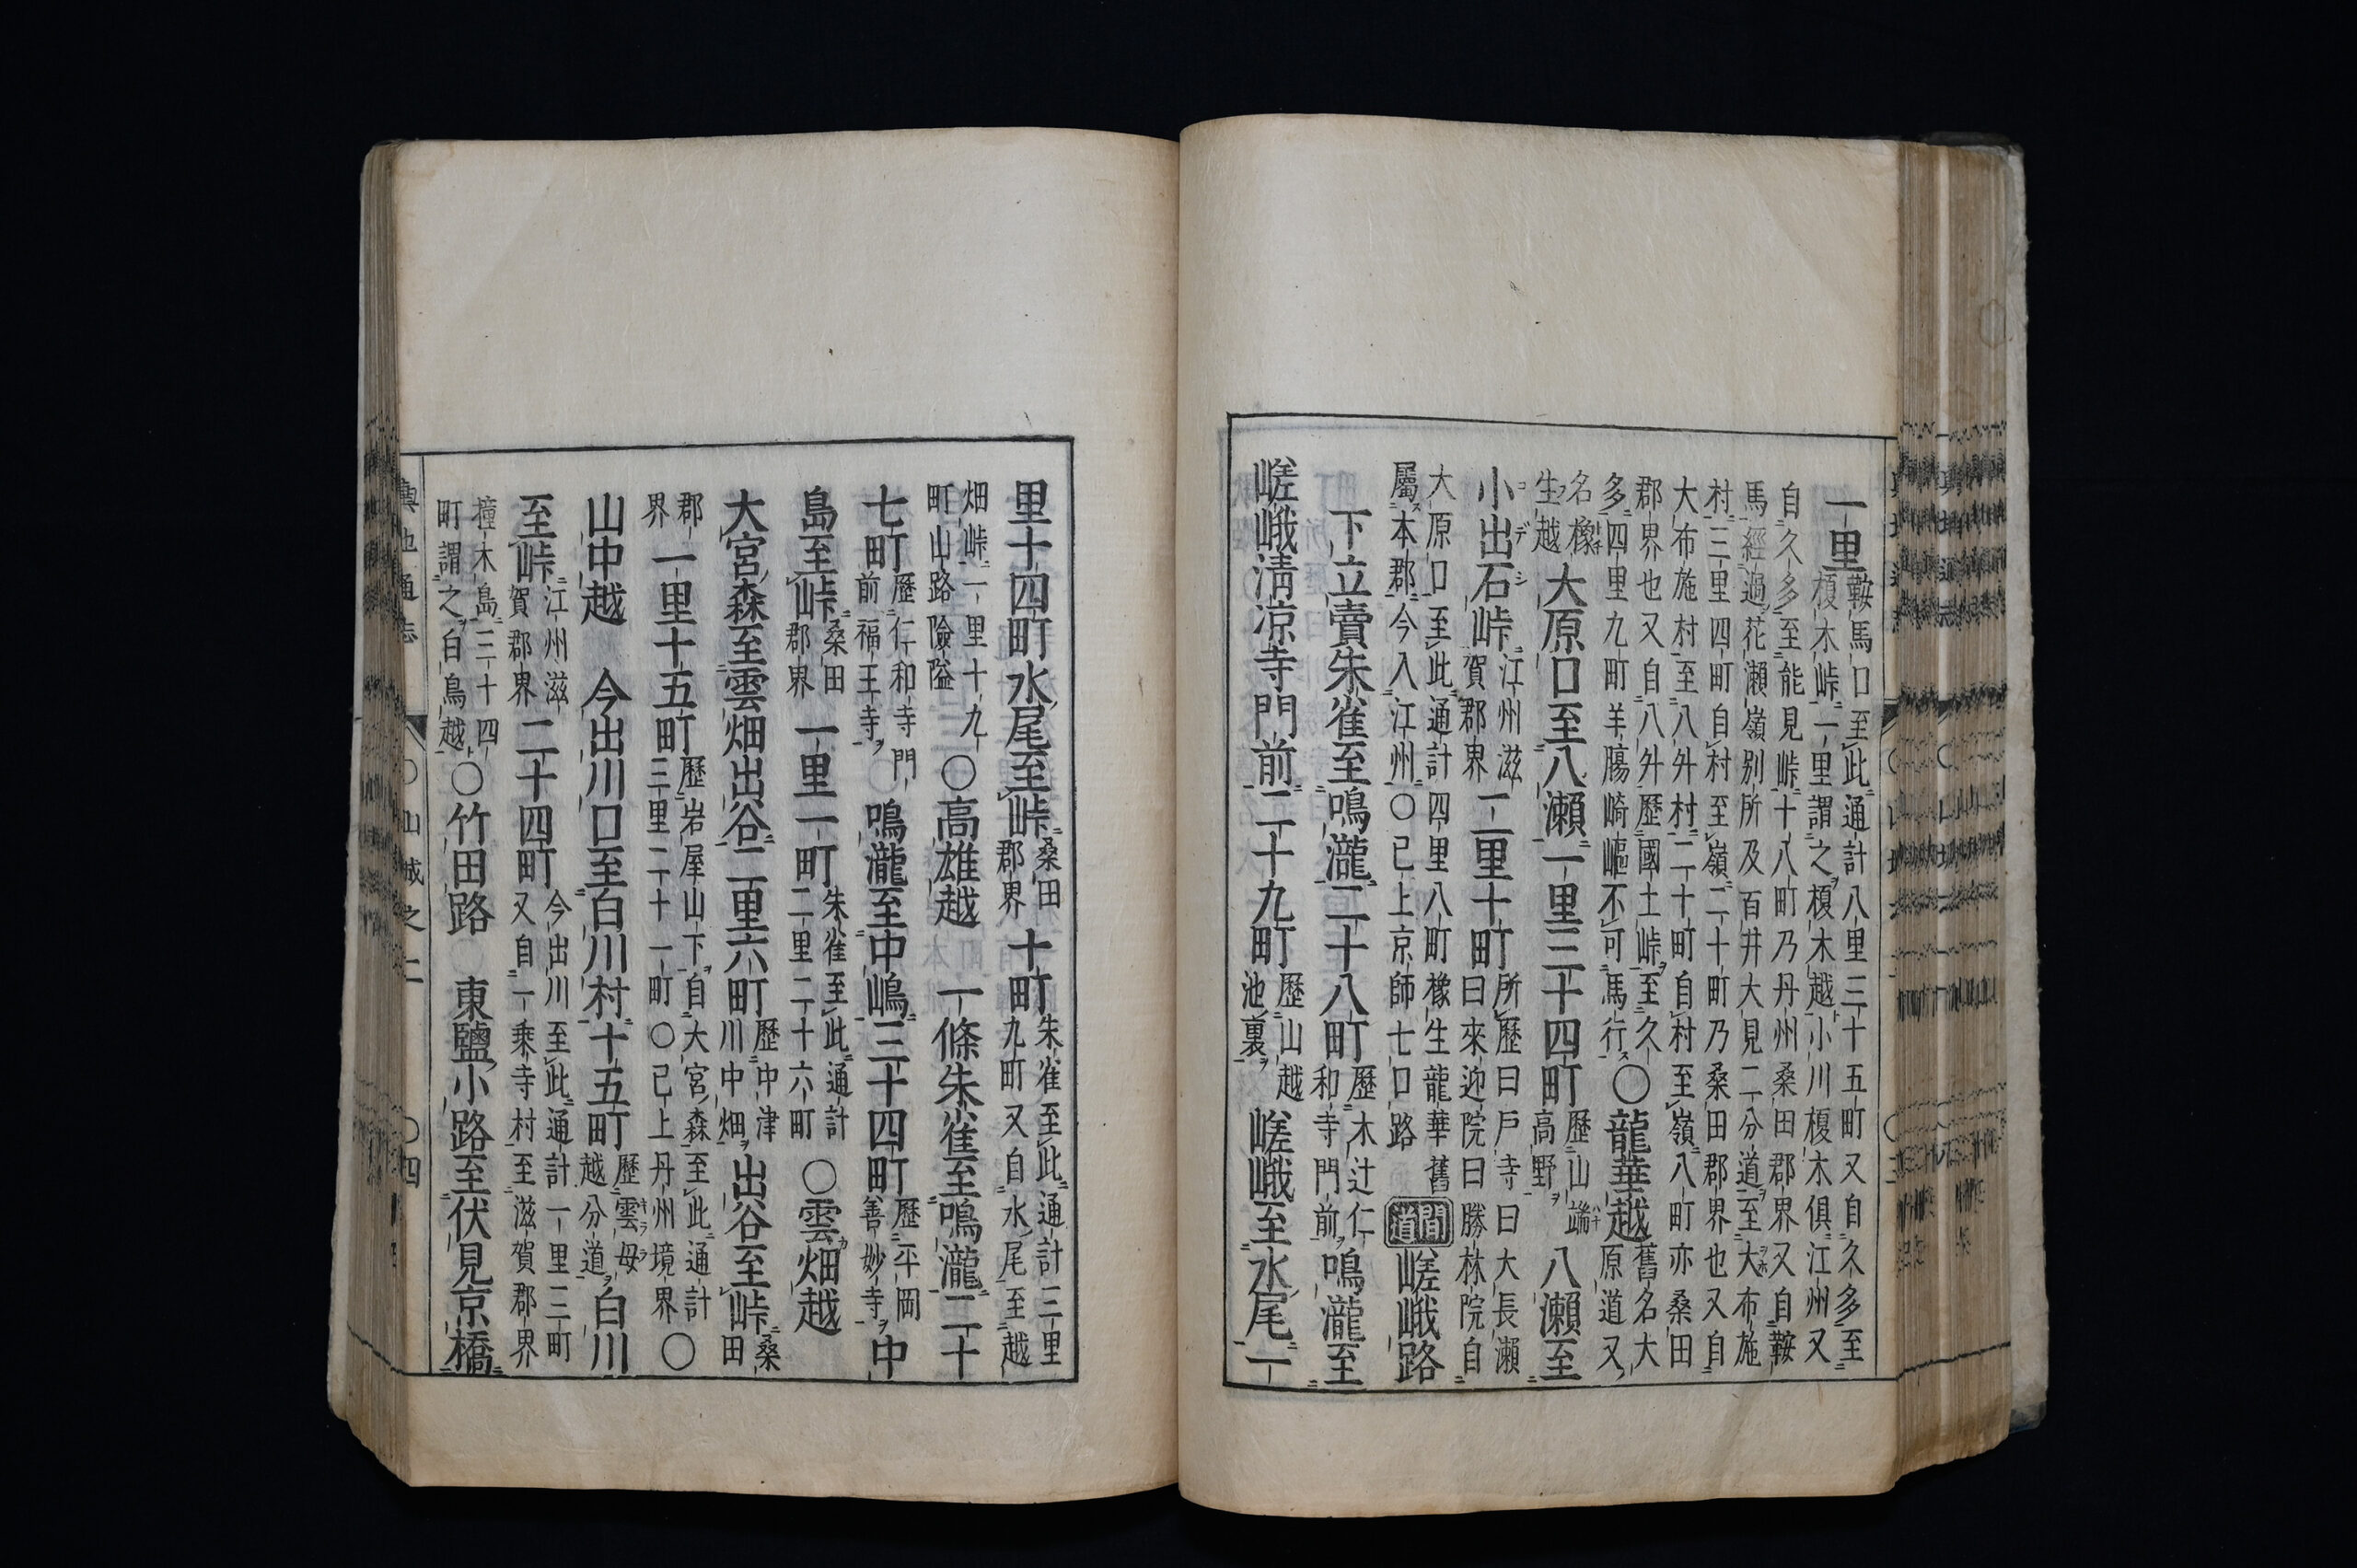 一里
鞍馬口至此通計八里三十五町又自久多至
榎木峠一里謂之榎木越小川榎木俱江州又
自久多至能見峠十八町乃丹州桑田郡界又自鞍
馬經過花瀬嶺別所及百井大見二分道至大布施
村三里四町自村至嶺二十町乃桑田郡界也又自
大布施村至八舛村二十町自村至嶺八町亦桑田
郡界也又自八舛歷國土峠至久
多四里九町羊膓崎嶇不可馬行
○龍華越
舊名大
原道又
名橡
生越
大原口至八瀬一里三十四町
歷山端
高野
八瀬至
小出石峠
江州滋
賀郡界
二里十町
所歷曰戸寺曰大長瀬
曰來迎院曰勝林院自
大原口至此通計四里八町橡生龍華舊
屬本郡今入江州○已上京師七口路
間道
嵯峨路
下立賣朱雀至鳴瀧二十八町
歷木辻仁
和寺門前
鳴瀧至
嵯峨淸凉寺門前二十九町
歷山越
池裏
嵯峨至水尾一
里十四町水尾至峠
桑田
郡界
十町
朱雀至此通計三里
九町又自水尾至越
畑峠一里十九
町山路險隘
○高雄越
一條朱雀至鳴瀧二十
七町
歷仁和寺門
前福王寺
鳴瀧至中嶋三十四町
歷平岡
善妙寺
中
島至峠
桑田
郡界
一里一町
朱雀至此通計
二里二十六町
○雲畑越
大宮森至雲畑出谷二里六町
歷中津
川中畑
出谷至峠
桑田
郡
界
一里十五町
歷岩屋山下自大宮森至此通計
三里二十一町○已上丹州境界
○
山中越
今出川口至白川村十五町
歷雲母
越分道
白川
至峠
江州滋
賀郡界
二十四町
今出川至此通計一里三町
又自一乘寺村至滋賀郡界
撞木島三十四
町謂之白鳥越
○竹田路
東鹽小路至伏見京橋
輿地通志
○山城之二
○四